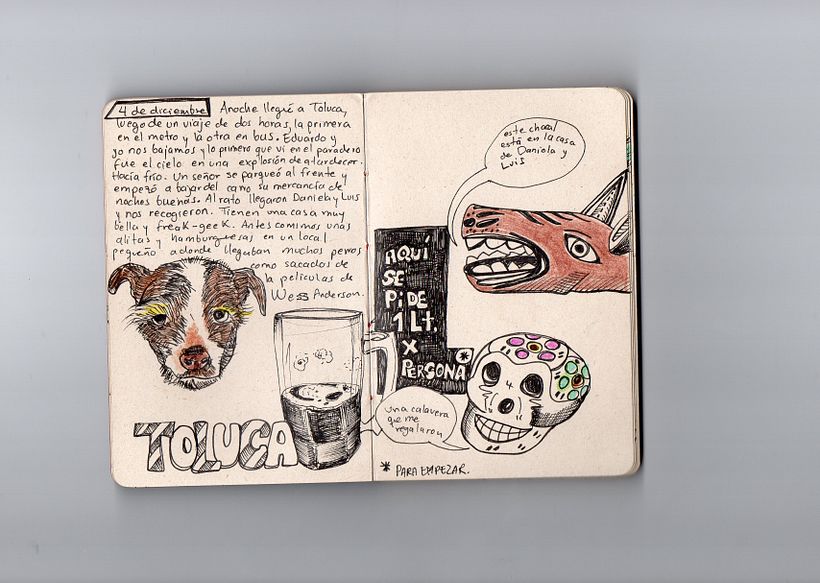 4 de diciembre Anoche llegué a Toluca,
luego de un viaje de dos horas, la primera
en el metro y la otra en bus. Eduardo y
yo nos bajamos y lo primero que vi en el paradero
fue el cielo en una explosión de atardecer.
Hacía frío. Un señor se parqueó al frente y
empezó a bajar del carro su mercancía de
noches buenas. Al rato llegaron Daniela y Luis
y nos recogieron. Tienen una casa muy
bella y freak-geek. Antes comimos unas
alitas y hamburguesas en un local
pequeño a donde llegaban muchos perros
como sacados de
la películas de
Wess Anderson.
TOLUCA
este chacal
está en la casa
de Daniela y
Luis
AQUÍ
SE
PiDE
1 Lt.
X
PERSONA*
una calavera
que me
regalaron
* PARA EMPEZAR.